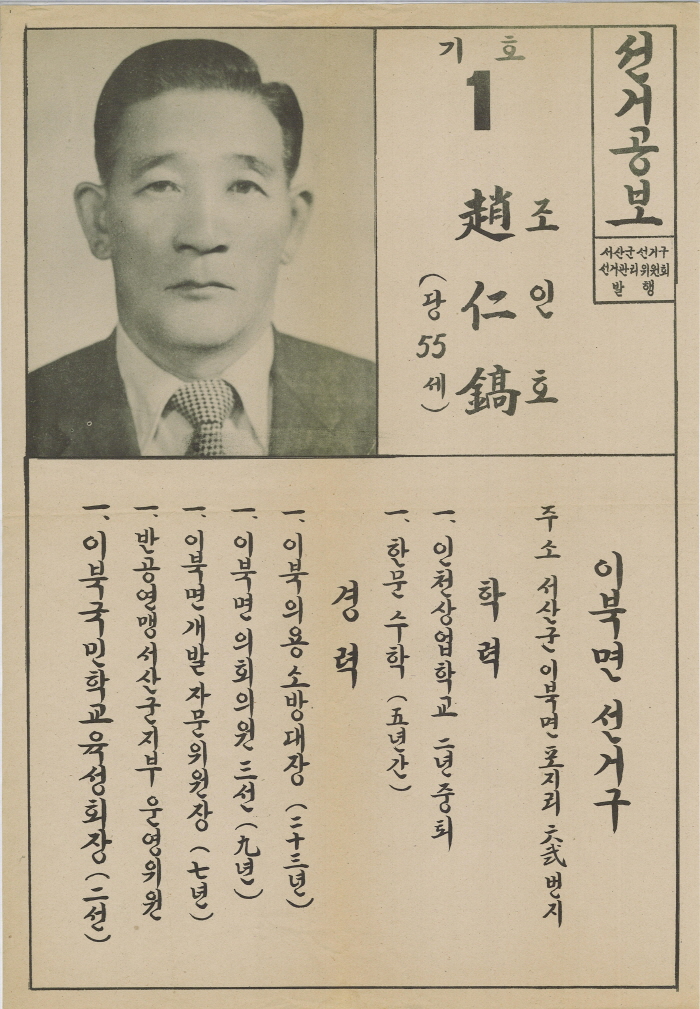 선거공보
서산군선거구
선거관리위원회
발행
기호
1
조인호
趙仁鎬
(당55세)
이북면 선거구
주소 서산군 이북면 포지리 六弐번지
학력
一. 인천상업학교 二년중퇴
一. 한문 수학 (五년간)
경력
一. 이북의용소방대장 (二十三년)
一. 이북면의회의원 三선 (九년)
一. 이북면개발자문위원장 (七년)
一. 반공연맹서산군지부 운영위원
一. 이북국민학교육성회장 (二선)